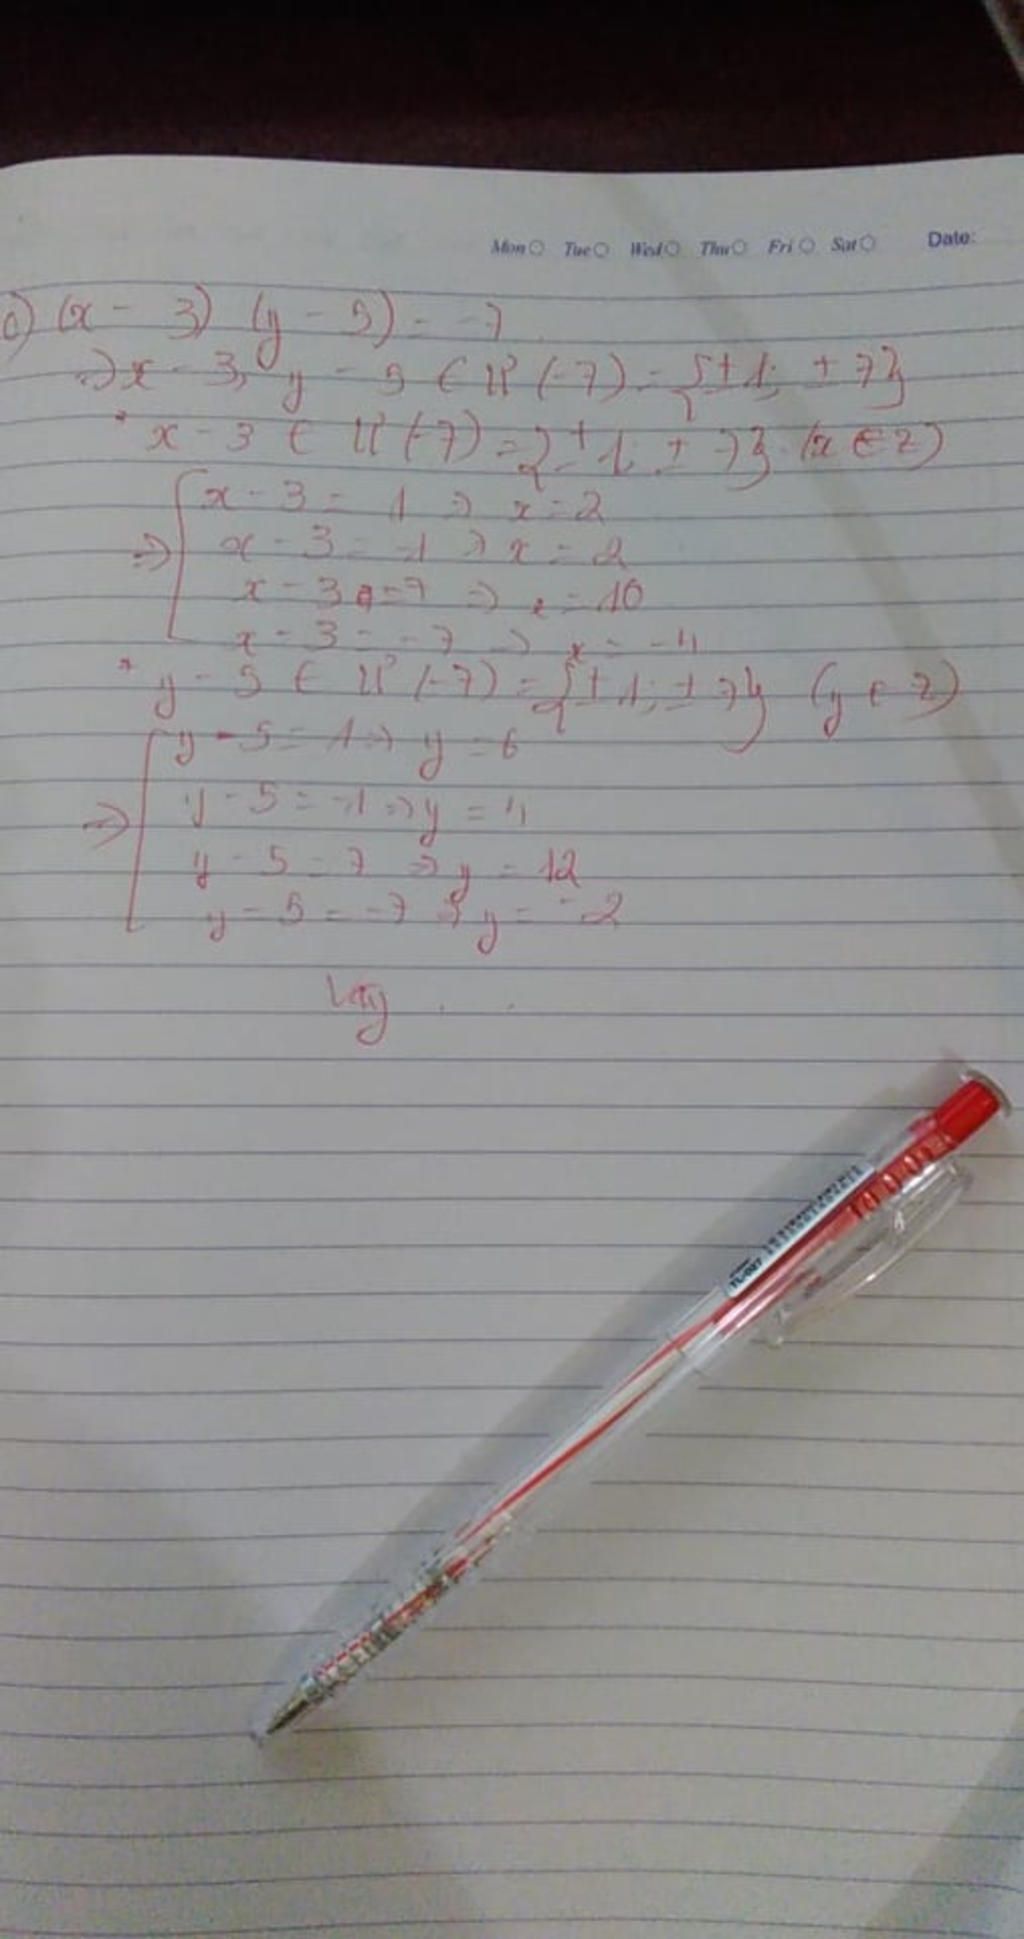 Mon Tue Wed Thu Fri Sat Date:
c) (x - 3) (y - 5) = -7
=> x - 3, y - 5 ∈ Ư (-7) = {±1; ±7}
* x - 3 ∈ Ư (-7) = {±1; ±7} (x ∈ Z)
x - 3 = 1 => x = 2
=> x - 3 = -1 => x = 2
x - 3 = 7 => x = 10
x - 3 = -7 => x = -4
* y - 5 ∈ Ư (-7) = {±1; ±7} (y ∈ Z)
y - 5 = 1 => y = 6
=> y - 5 = -1 => y = 4
y - 5 = 7 => y = 12
y - 5 = -7 => y = -2
Vậy . .
TL-027